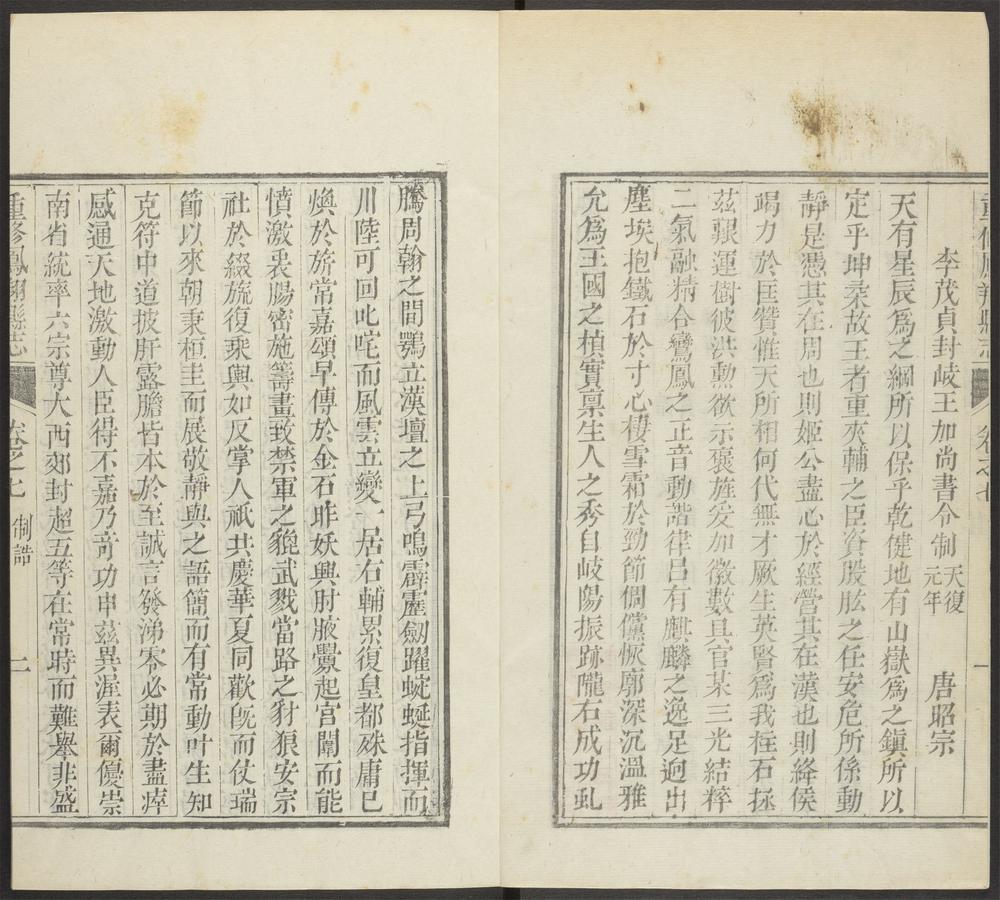 重修鳳翔縣志 卷之七 一
李茂貞封岐王加尚書令制 天復元年 唐昭宗
天有星辰爲之綱所以保乎乾健地有山嶽爲之鎮所以
定乎坤柔故王者重夾輔之臣資股肱之任安危所係動
靜是憑其在周也則姬公盡心於經營其在漢也則絳侯
竭力於匡贊惟天所相何代無才厥生英賢爲我柱石拯
茲艱運樹彼洪勲欲示褒旌爰加徽數具官某三光結粹
二氣融精合鸞鳳之正音動諧律呂有麒麟之逸足迥出
塵埃抱鐵石於寸心棲雪霜於勁節倜儻恢廓深沉溫雅
允爲王國之楨實禀生人之秀自岐陽振跡隴右成功虬
騰周翰之間鶚立漢壇之上弓鳴霹靂劒躍蜿蜒指揮而
川陸可回叱咤而風雲立變一居右輔累復皇都殊庸已
煥於旂常嘉頌早傳於金石昨妖興肘腋釁起宮闈而能
憤激衷腸密施籌畫致禁軍之貔武戮當路之豺狼安宗
社於綴旒復乘輿如反掌人祇共慶華夏同歡旣而仗瑞
節以來朝秉桓圭而展敬靜與之語簡而有常動叶生知
克符中道披肝露膽皆本於至誠言發涕零必期於盡瘁
感通天地激動人臣得不嘉乃竒功申茲異渥表爾優崇
南省統率六宗尊大西郊封超五等在常時而難舉非盛
重修鳳翔縣志 卷之七 制誥 一